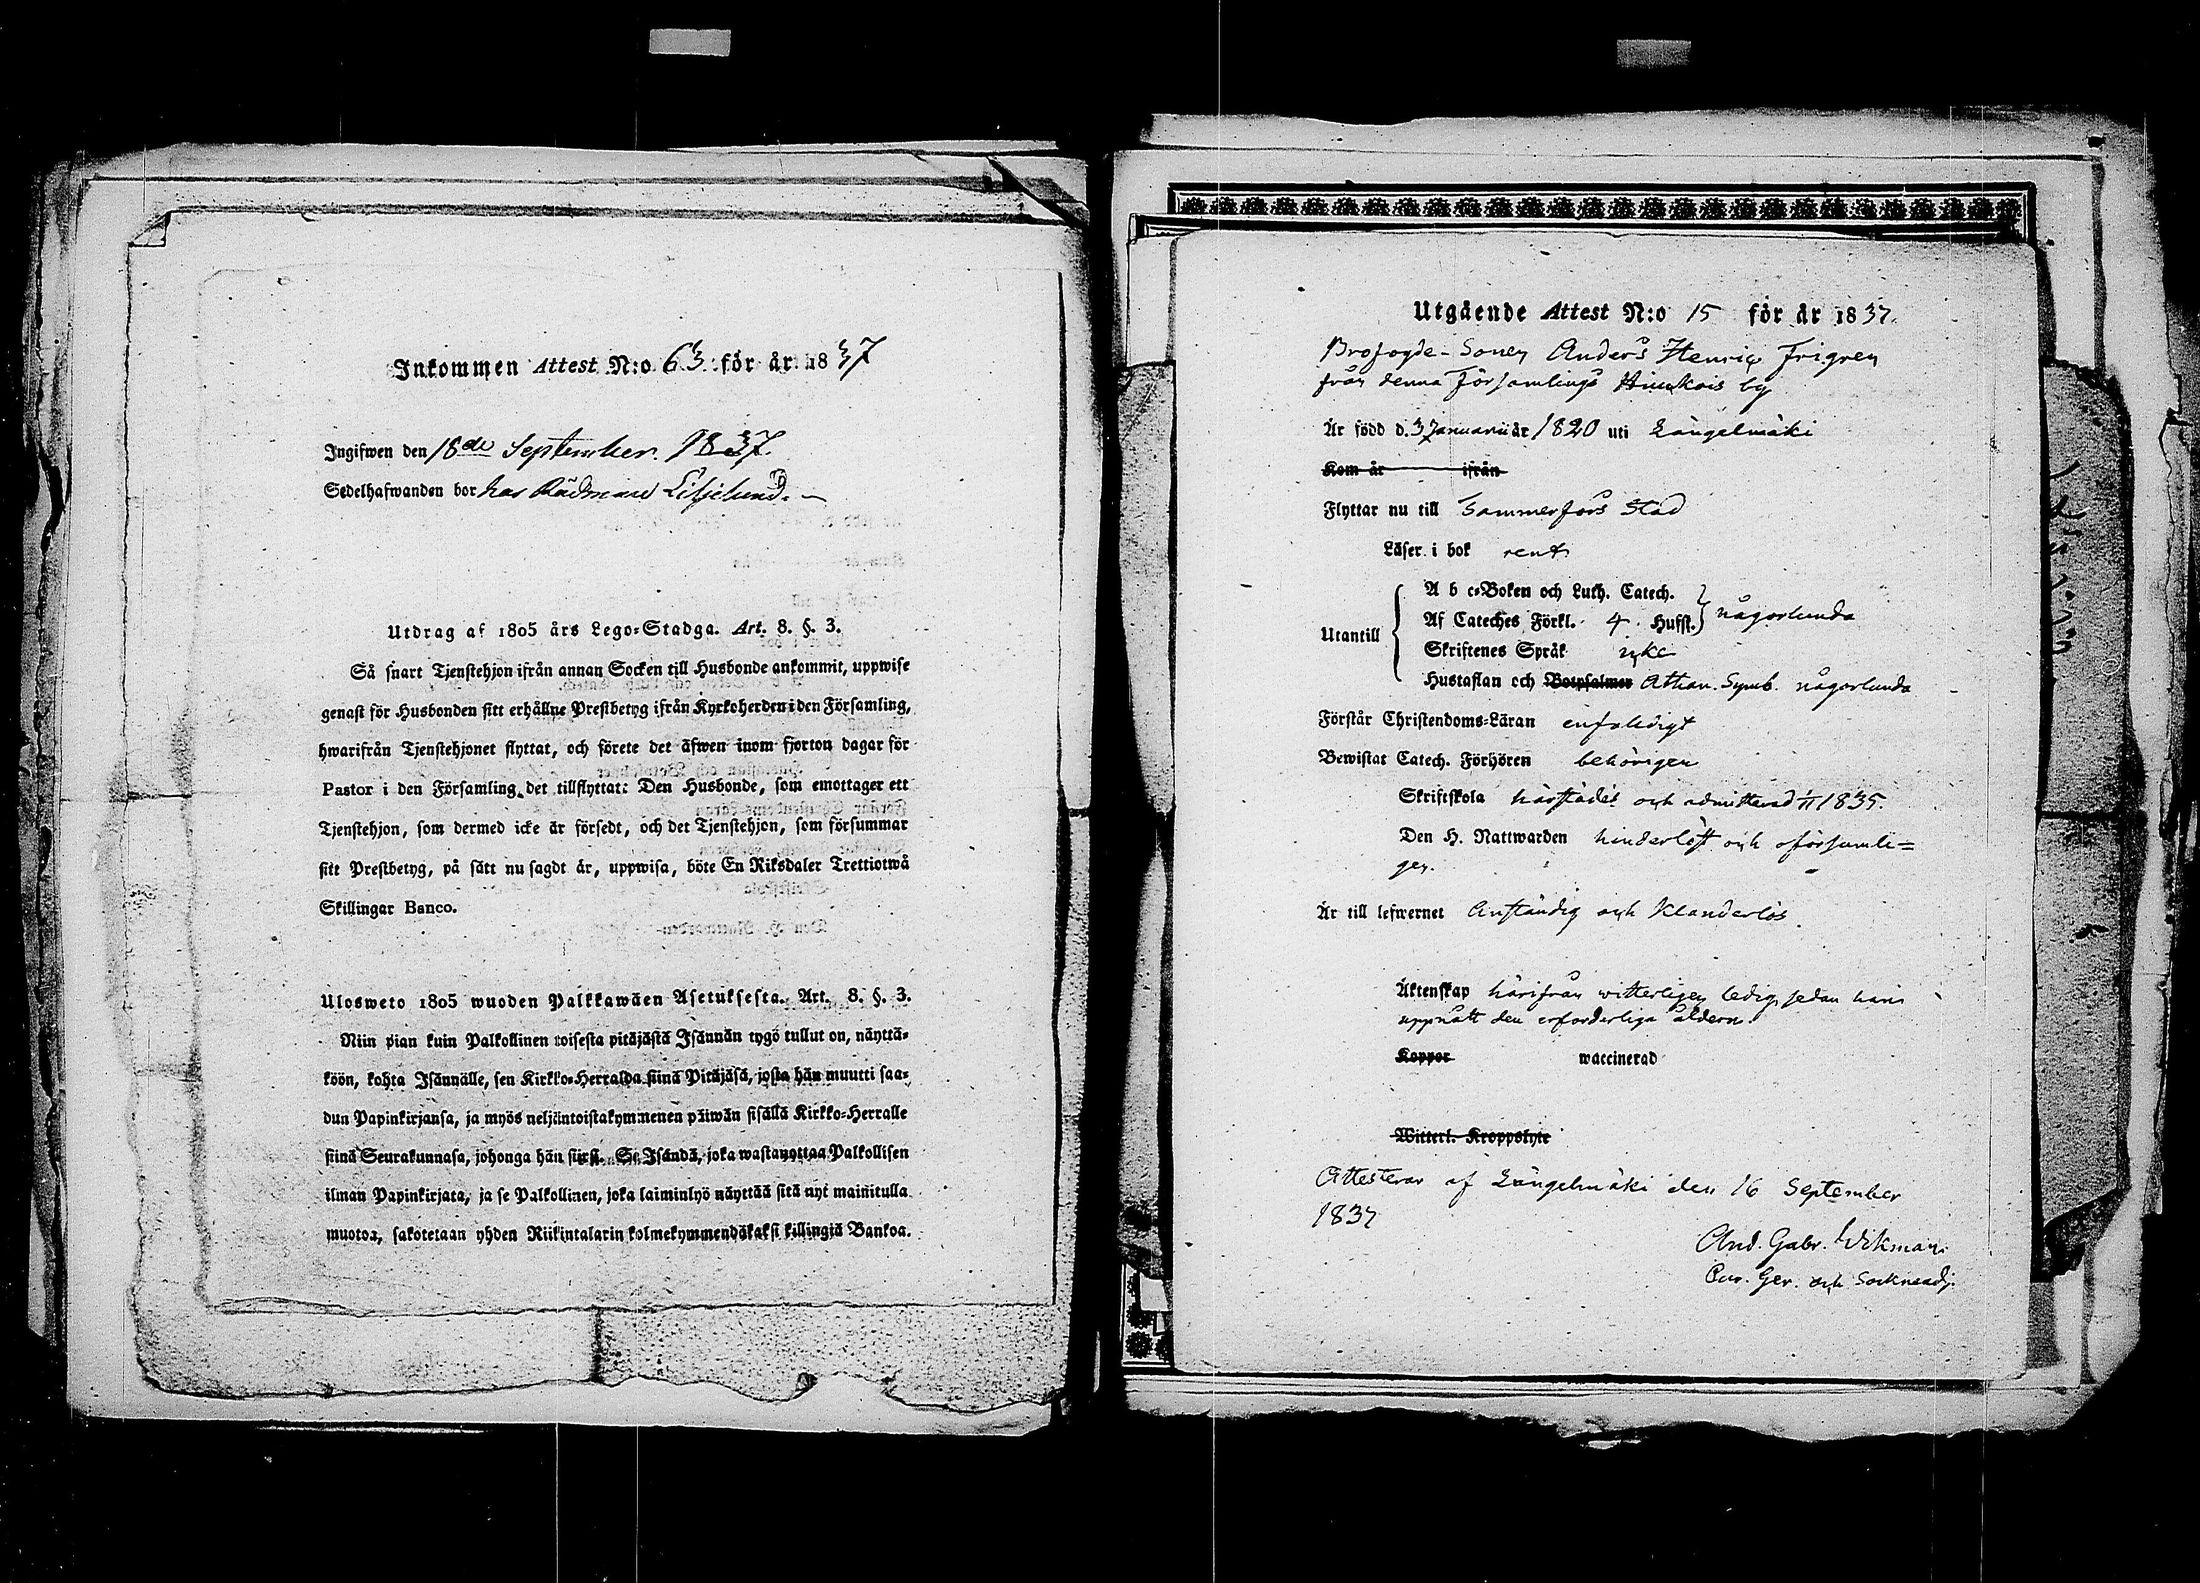 Inkommen Attest N:o 63 för år 1837
Ingifwen den 18de September. 1837.
Sedelhafwanden bor hos Rådman Liljelund.
Utdrag af 1805 års Lego-Stadga. Art. 8. §. 3.
Så snart Tjenstehjon ifrån annan Socken till Husbonde ankommit, uppwise
genast för Husbonden sitt erhållne Prestbetyg ifrån Kyrkoherden i den Församling,
hwarifrån Tjenstehjonet flyttat, och förete det äfwen inom fjorton dagar för
Pastor i den Församling det tillflyttat: Den Husbonde, som emottager ett
Tjenstehjon, som dermed icke är försedt, och det Tjenstehjon, som försummar
sitt Prestbetyg, på sätt nu sagdt är, uppwisa, böte En Riksdaler Trettiotwå
Skillingar Banco.
Ulosweto 1805 wuoden Palkkawäen Asetuksesta. Art. 8. §. 3.
Niin pian kuin Palkollinen toisesta pitäjästä Isännän tygö tullut on, näyttä-
köön, kohta Isännälle, sen Kirkko-Herralda siinä Pitäjäsä, josta hän muutti saa-
dun Papinkirjansa, ja myös neljäntoistakymmenen päiwän sisällä Kirkko-Herralle
siinä Seurakunnasa, johonga hän siirsi. Se Isändä, joka wastanottaa Palkollisen
ilman Papinkirjata, ja se Palkollinen, joka laiminlyö näyttää sitä nyt mainitulla
muotoa, sakotetaan yhden Riikintalarin kolmekymmendäkaksi killingiä Bankoa.
Utgående Attest N:o 15 för år 1837.
Brofogde-Sonen Anders Henric Frigren
från denna Församlings by
Är född d. 3 Januarii år 1820 uti Längelmäki
Kom år ifrån
Flyttar nu till Tammerfors Stad
Läser i bok rent
A b c-Boken och Luth. Catech.
Utantill Af Cateches Förkl. 4 Hufst. någorlunda
Skriftenes Språk icke
Hustaflan och Botpsalmer Athan. Symb. någorlunda
Förstår Christendoms-Läran enfaldigt
Bewistat Catech. Förhören behörigen
Skriftskola härstädes och admitterad 1835.
Den H. Nattwarden hinderlöst och oförsumli=
gen.
Är till lefwernet Anständig och Klanderlös.
Äktenskap härifrån witterligen ledig, sedan han
uppnått den erforderliga åldern.
Koppor waccinerad
Witterl. Kroppslyte
Attesterar af Längelmäki den 16 September
1837
And. Gabr. Wikman.
och Sockneadj.